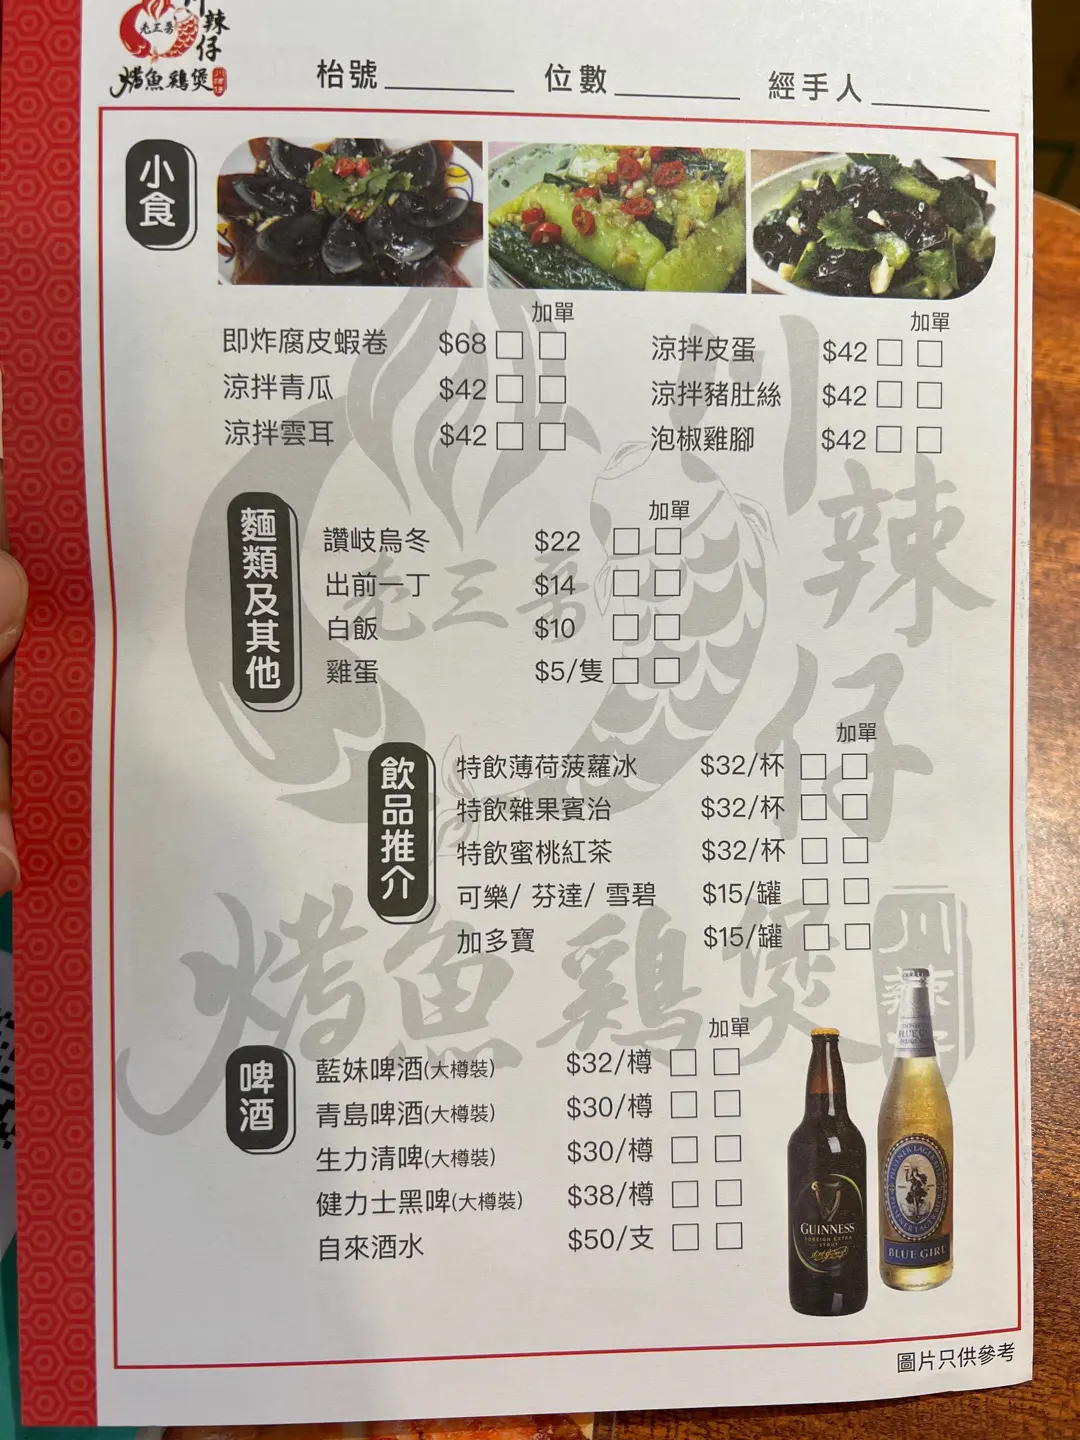 老三哥
川辣仔
烤魚鷄煲
枱號 位數 經手人
小食
加單 加單
即炸腐皮蝦卷 $68 涼拌皮蛋 $42
涼拌青瓜 $42 涼拌豬肚絲 $42
涼拌雲耳 $42 泡椒雞腳 $42
麵類及其他
加單
讚岐烏冬 $22
出前一丁 $14
白飯 $10
雞蛋 $5/隻
飲品推介
加單
特飲薄荷菠蘿冰 $32/杯
特飲雜果賓治 $32/杯
特飲蜜桃紅茶 $32/杯
可樂/ 芬達/ 雪碧 $15/罐
加多寶 $15/罐
啤酒
加單
藍妹啤酒(大樽裝) $32/樽
青島啤酒(大樽裝) $30/樽
生力清啤(大樽裝) $30/樽
健力士黑啤(大樽裝) $38/樽
自來酒水 $50/支
GUINNESS
FOREIGN EXTRA
STOUT
PILSNER LAGER
BLUE GIRL
圖片只供參考
老三哥
川辣仔
烤魚鷄煲